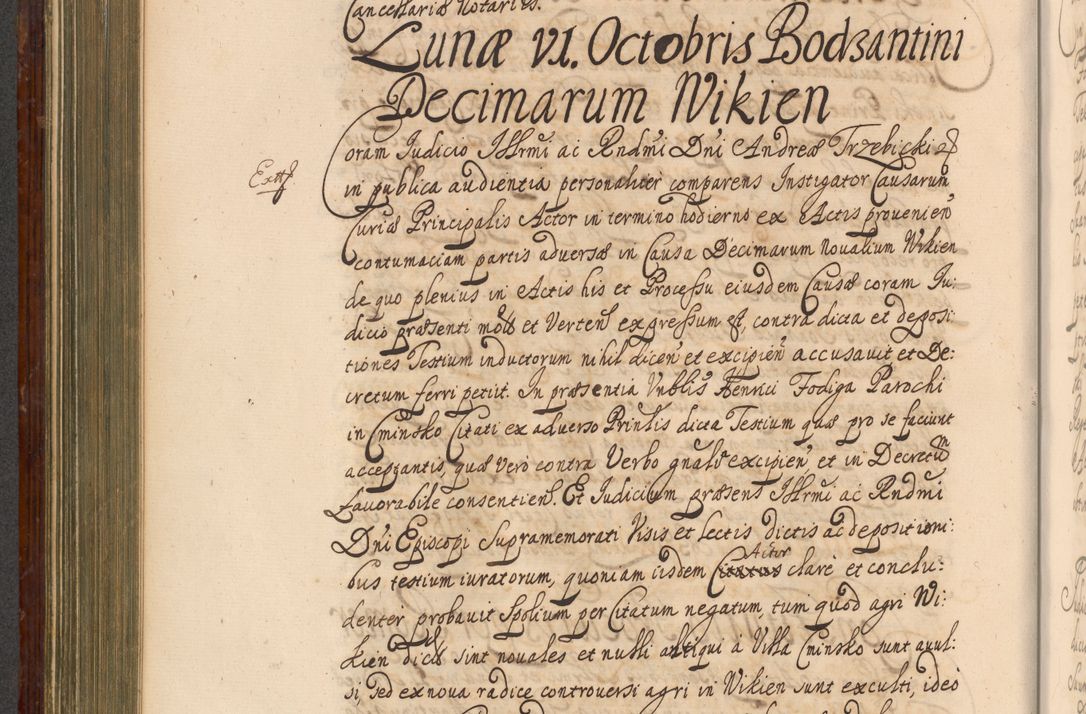 Cancellariæ Notaries.
Lunæ VI. Octobris Bodzantini
Decimarum Wikien
Coram Judicio Jllrmi ac Rndmi Dni Andreæ Trzebicki
Extt
in publica audientia personaliter comparens Instigator Causarum
Curiæ Principalis Actor in termino hodierno ex Actis provenien
contumaciam partis adversæ in Causa Decimarum Novalium Wikien
de quo plenius in Actis his et Processu eiusdem Causæ coram Ju:
dicio præsenti et Verten expressum contra dicta et deposi:
tiones Testium inductorum nihil dicen et excipien accusavit et De:
cretum ferri petiit. In præsentia Vnblis Henrici Fodiga Parochi
in Cminsko Citati ex adverso Prinlis dicta Testium quæ pro se faciunt
acceptantis, quæ vero contra Verbo gnali excipien, et in Decretum
favorabile consentien. Et Judicium præsens Jllrmi ac Rndmi
Dni Episcopi Supramemorati Visis et Lectis dictis ac depositioni:
bus testium iuratorum, quoniam iisdem Actor clare et conclu:
denter probavit Spolium per Citatum negatum, tum quod agri Wi:
kien sint novales et nulli antiqui à Villa Cminsko sunt avul:
si, sed ex nova radice controversi agri in Wikien sunt exculti, ideo